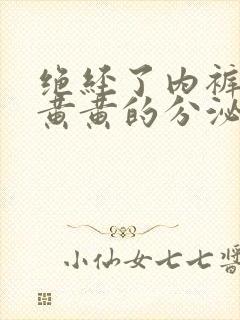 绝经了内裤
黄黄的分泌
小仙女七七酱